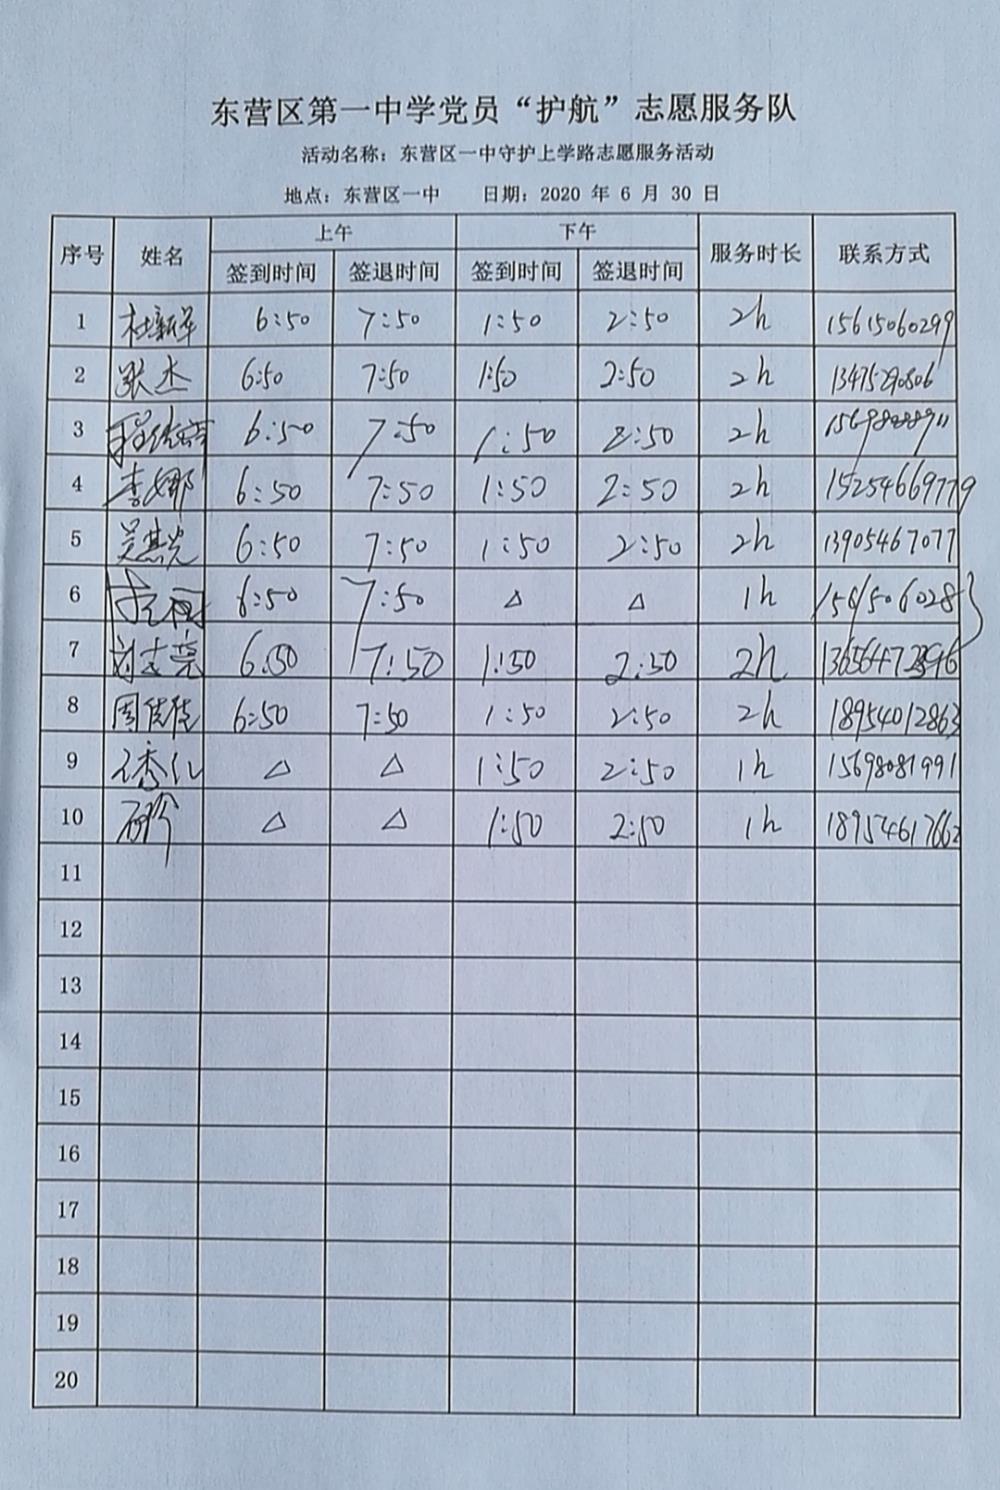 东营区第一中学党员“护航”志愿服务队
活动名称：东营区一中守护上学路志愿服务活动
地点：东营区一中 日期：2020 年 6 月 30 日
序号 姓名 上午 下午 服务时长 联系方式
签到时间 签退时间 签到时间 签退时间
1 杜新军 6:50 7:50 1:50 2:50 2h 15615060299
2 张杰 6:50 7:50 1:50 2:50 2h 13475290806
3 6:50 7:50 1:50 2:50 2h
4 李娜 6:50 7:50 1:50 2:50 2h 15254669779
5 吴燕光 6:50 7:50 1:50 2:50 2h 13905467077
6 6:50 7:50 △ △ 1h
7 6:50 7:50 1:50 2:50 2h
8 周佳佳 6:50 7:50 1:50 2:50 2h 18954012863
9 △ △ 1:50 2:50 1h 15698081991
10 △ △ 1:50 2:50 1h 18954617662
11
12
13
14
15
16
17
18
19
20